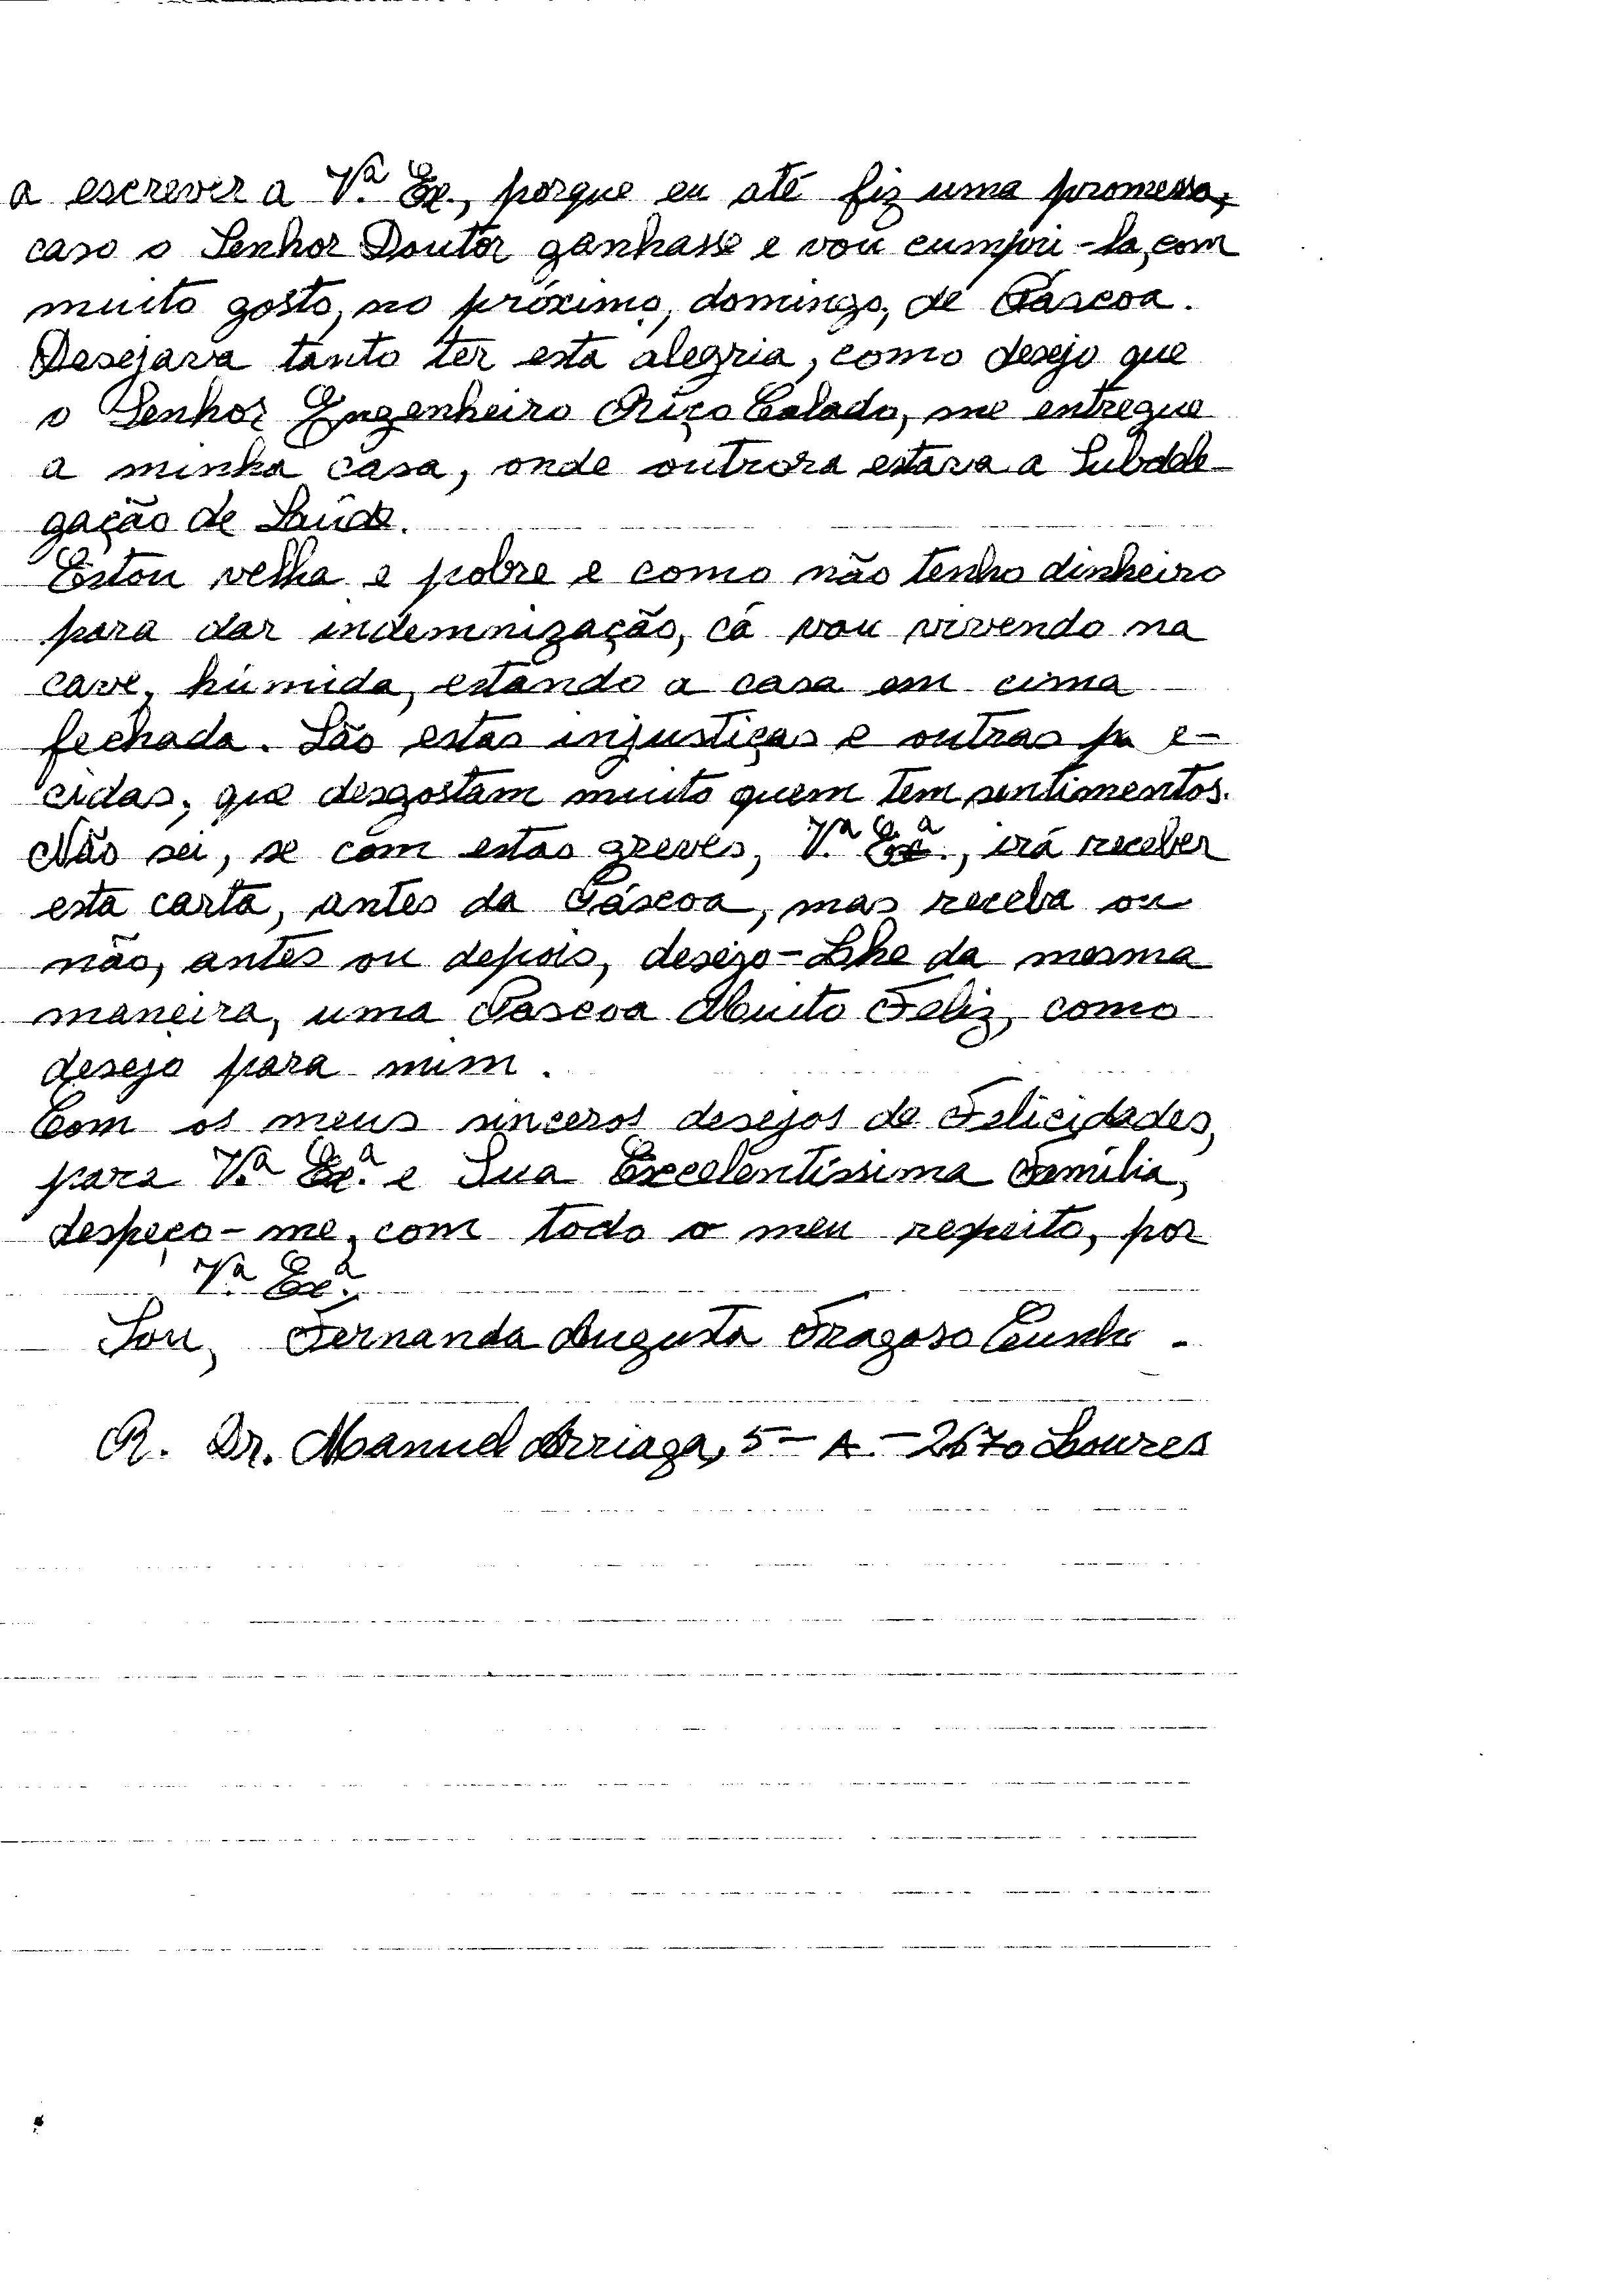 a escrever a V.ª Ex., porque eu até fiz uma promessa,
caso o Senhor Doutor ganhasse e vou cumpri-la, com
muito gosto, no próximo, domingo, de Páscoa.
Desejava tanto ter esta alegria, como desejo que
o Senhor Engenheiro Riço Calado, me entregue
a minha casa, onde outrora estava a Subdele-
gação de Saúde.
Estou velha e pobre e como não tenho dinheiro
para dar indemnização, cá vou vivendo na
cave, húmida, estando a casa em cima
fechada. São estas injustiças e outras pa e-
cidas, que desgostam muito quem tem sentimentos.
Não sei, se com estas greves, V.ª Ex.ª, irá receber
esta carta, antes da Páscoa, mas receba ou
não, antes ou depois, desejo-Lhe da mesma
maneira, uma Páscoa Muito Feliz, como
desejo para mim.
Com os meus sinceros desejos de Felicidades,
para V.ª Ex.ª e Sua Excelentíssima Família,
despeço-me, com todo o meu respeito, por
V.ª Ex.ª
Sou, Fernanda Augusta Fragoso Cunha.
R. Dr. Manuel Arriaga, 5-A-2670 Loures